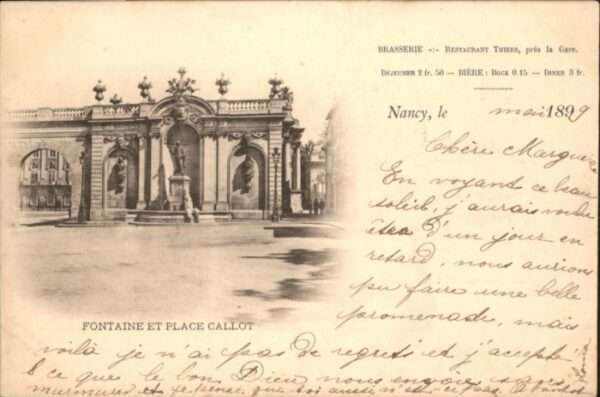 BRASSERIE -:- RESTAURANT THIERS, près la Gare.
DÉJEUNER 2 fr. 50 — BIÈRE : BOCK 0.15 — DINER 3 fr.
Nancy, le mai 1899
Chère
En voyant ce beau
soleil, j'aurais voulu
être d'un jour en
retard, nous aurions
pu faire une belle
promenade, mais
FONTAINE ET PLACE CALLOT
voilà je n'ai pas de regrets et j'accepte
ce que le bon Dieu nous envoie sans
murmurer et